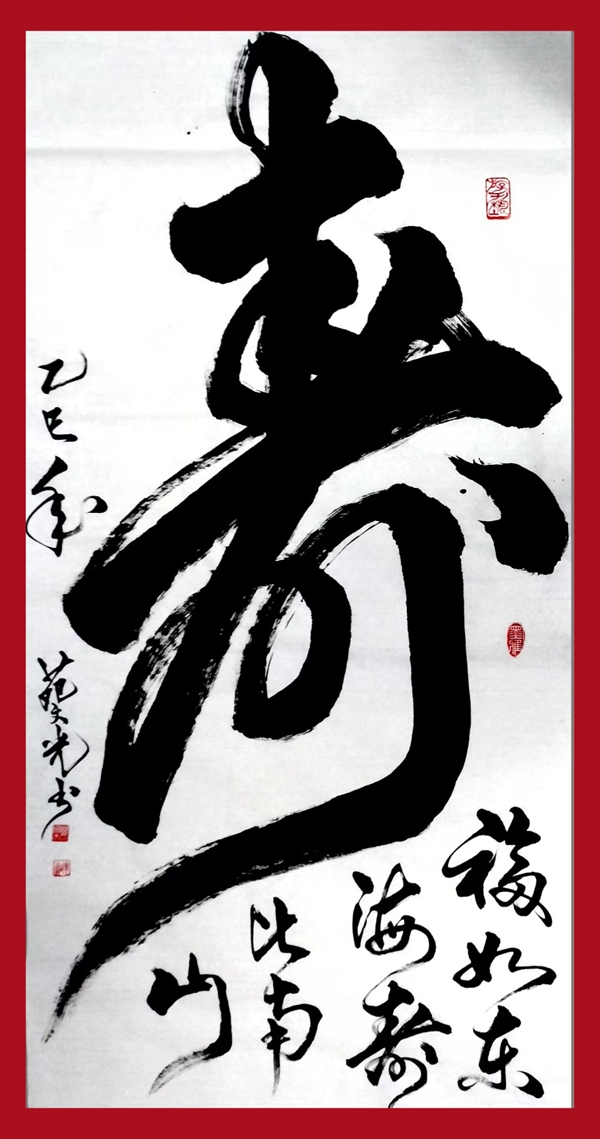 寿
福如东
海寿
比南
山
乙巳年
光书